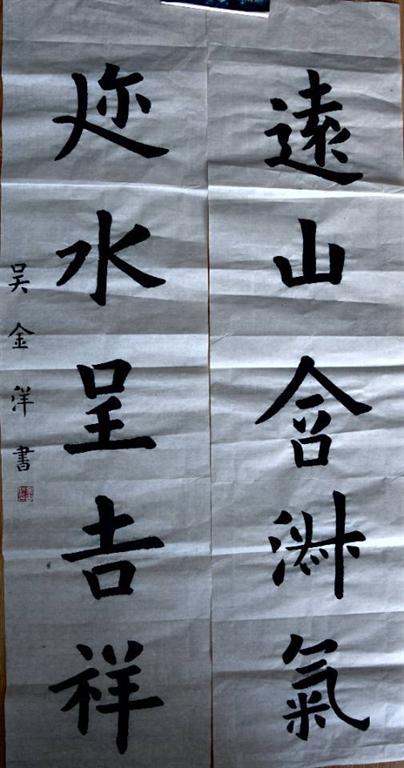 遠山含淑氣
迩水呈吉祥
吴金洋書